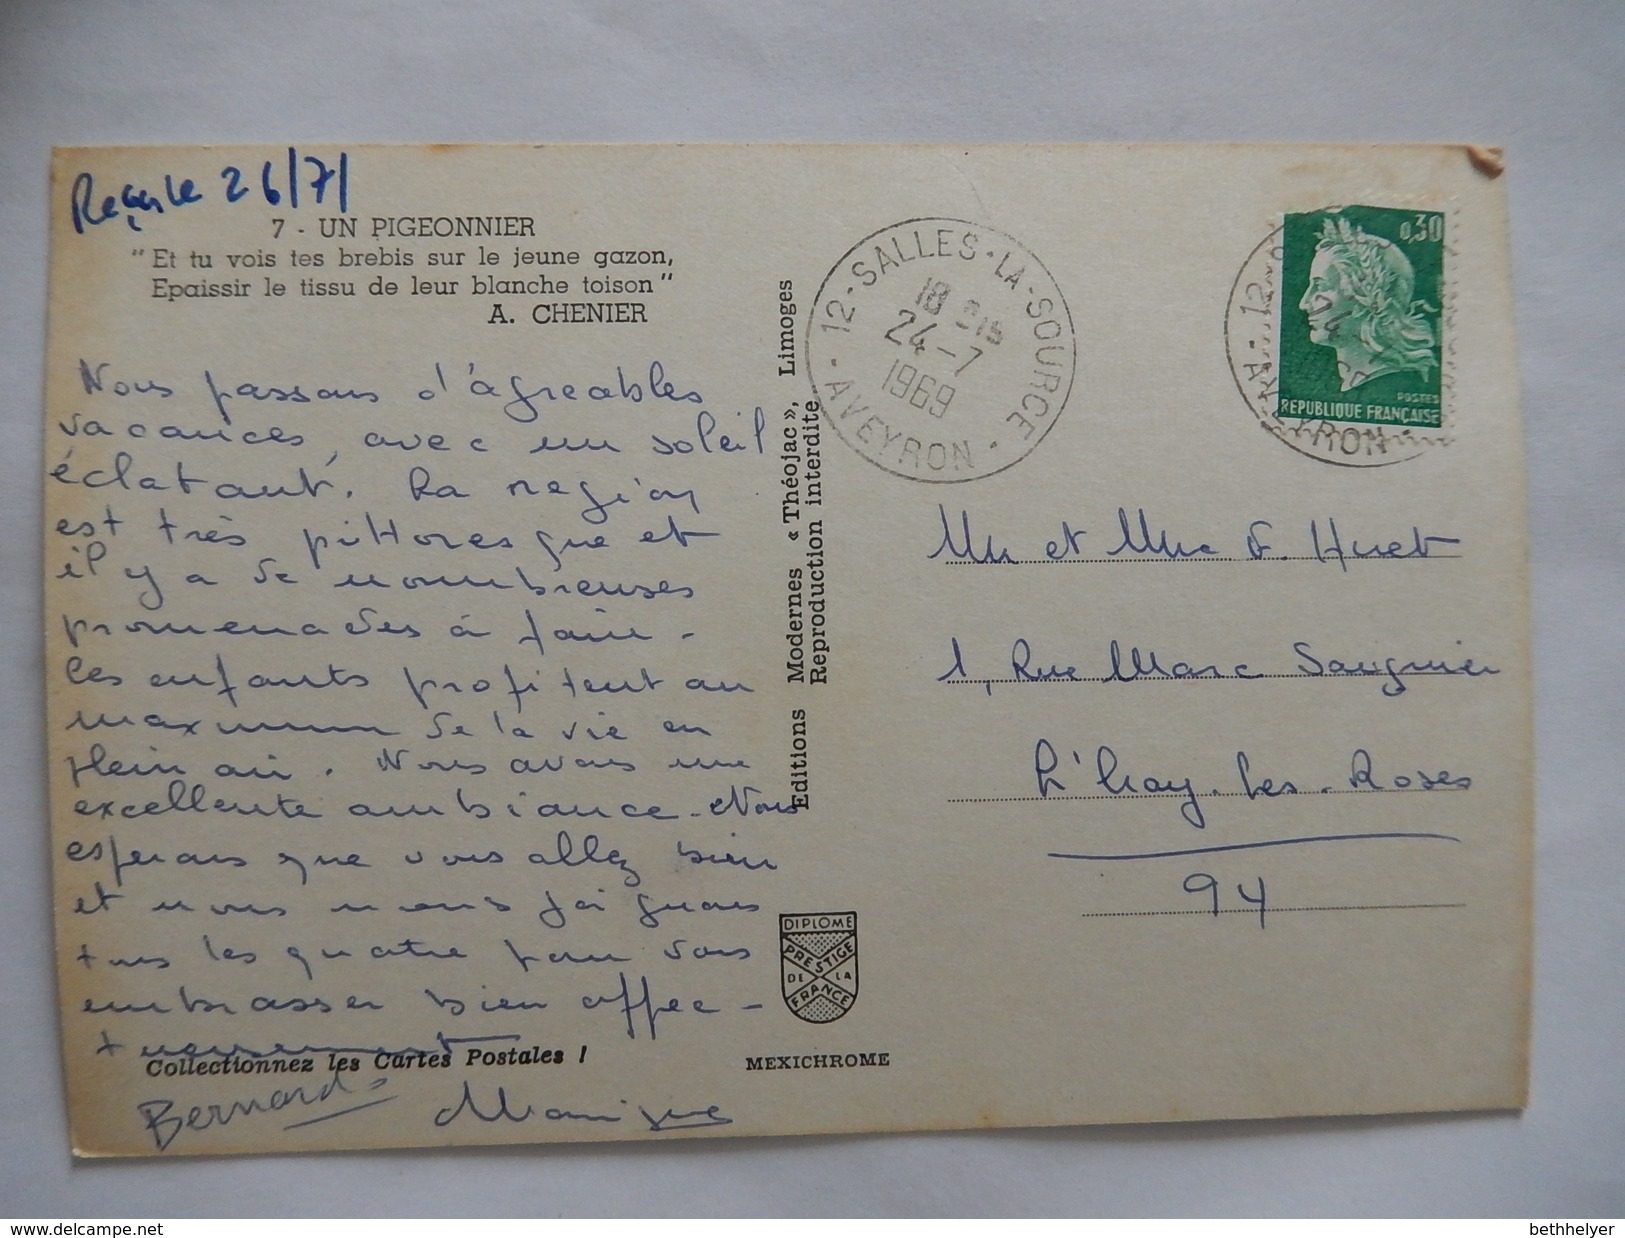 Reçu le 26/7/
7 - UN PIGEONNIER
"Et tu vois tes brebis sur le jeune gazon,
Epaissir le tissu de leur blanche toison"
A. CHENIER
Nous passons d'agréables
vacances, avec un soleil
éclatant. La region
est très pittoresque et
il y a de nombreuses
promenades à faire.
les enfants profitent au
maximum de la vie en
plein air. Nous avons une
excellente ambiance. Nous
esperons que vous allez bien
et nous nous joignons
tous les quatre pour vous
embrasser bien affec-
tueusement
Collectionnez les Cartes Postales !
Bernard Monique
Editions Modernes « Théojac », Limoges
Reproduction interdite
DIPLOME
PRESTIGE
DE LA
FRANCE
MEXICHROME
12 - SALLES-LA-SOURCE - AVEYRON -
18
24-7
1969
0,30
POSTES
REPUBLIQUE FRANÇAISE
Mr et Mme F. Huet
1, Rue Marc Sangnier
L'hay. les. Roses
94
delcampe.net
bethhelyer